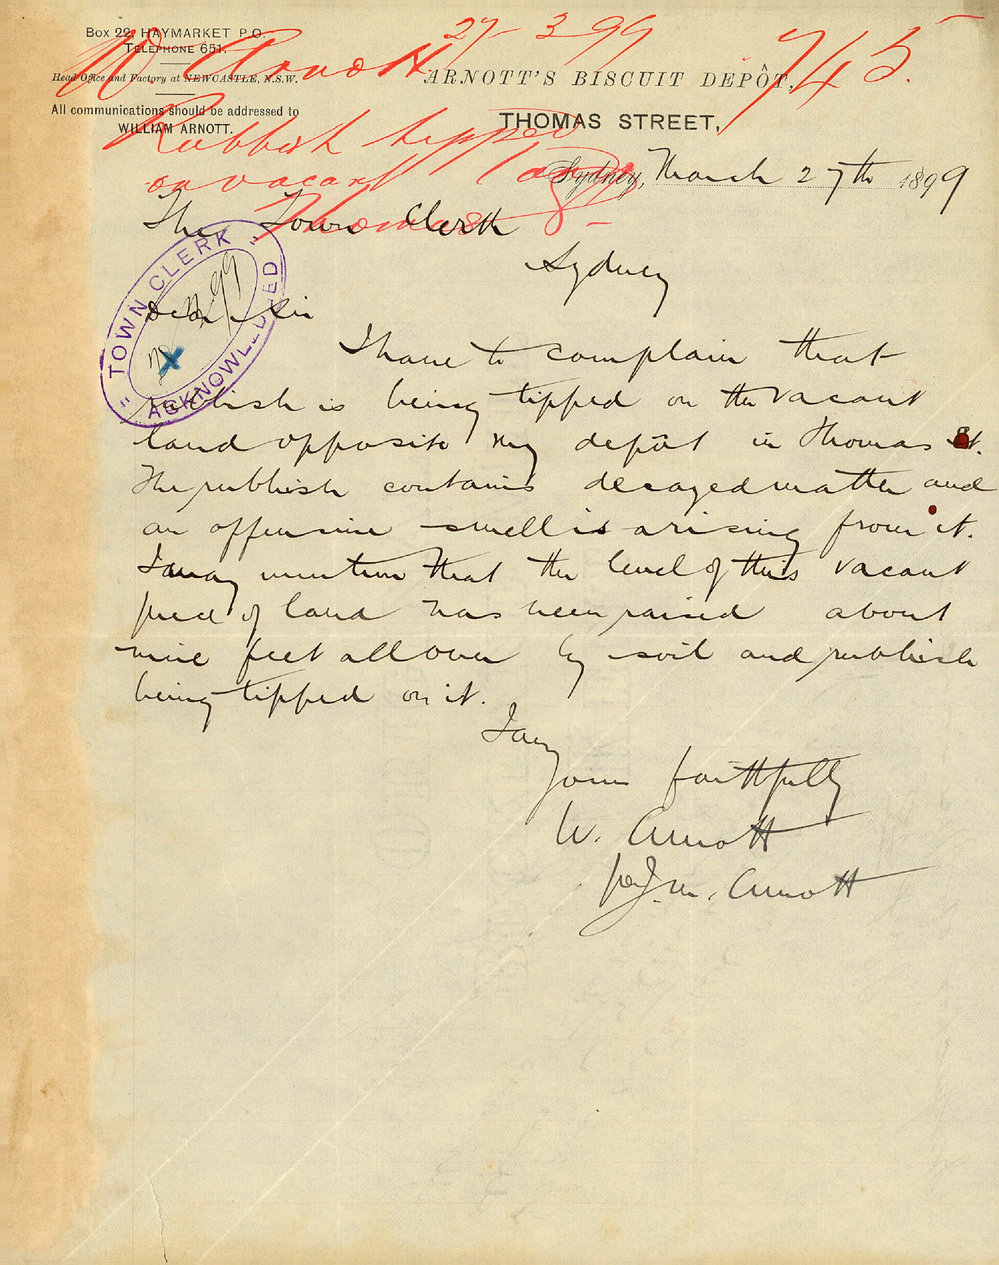 Box 22, HAYMARKET P.O.
TELEPHONE 651.
Head Office and Factory at NEWCASTLE, N.S.W.
All communications should be addressed to
WILLIAM ARNOTT.
ARNOTT'S BISCUIT DEPÔT,
THOMAS STREET,
27 3 99
745
W Arnott
Rubbish tipped
on vacant land
Thomas St
Sydney, March 27th 1899
The Town Clerk
Sydney
TOWN CLERK
ACKNOWLEDGED
99
Dear Sir
I have to complain that
rubbish is being tipped on the vacant
land opposite my depôt in Thomas St.
The rubbish contains decayed matter and
an offensive smell is arising from it.
I may mention that the level of this vacant
piece of land has been raised about
nine feet all over by soil and rubbish
being tipped on it.
I am
Yours faithfully
W. Arnott
per J. M. Arnott